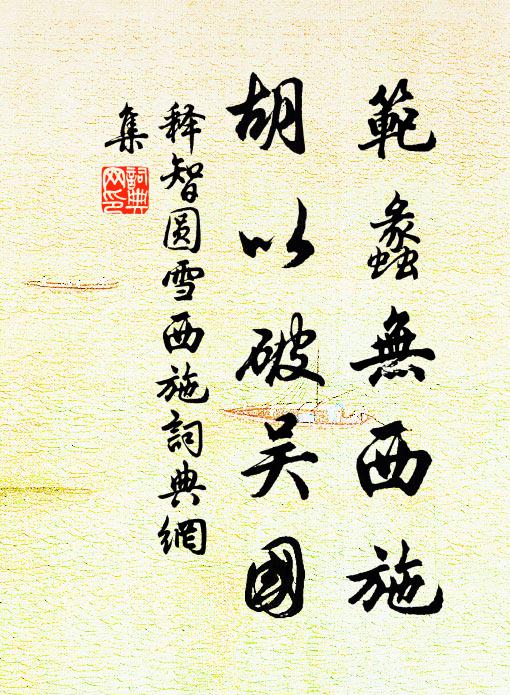 範蠡無西施
胡以破吴國
释智圆雪西施詞典網
集
詞典
网印